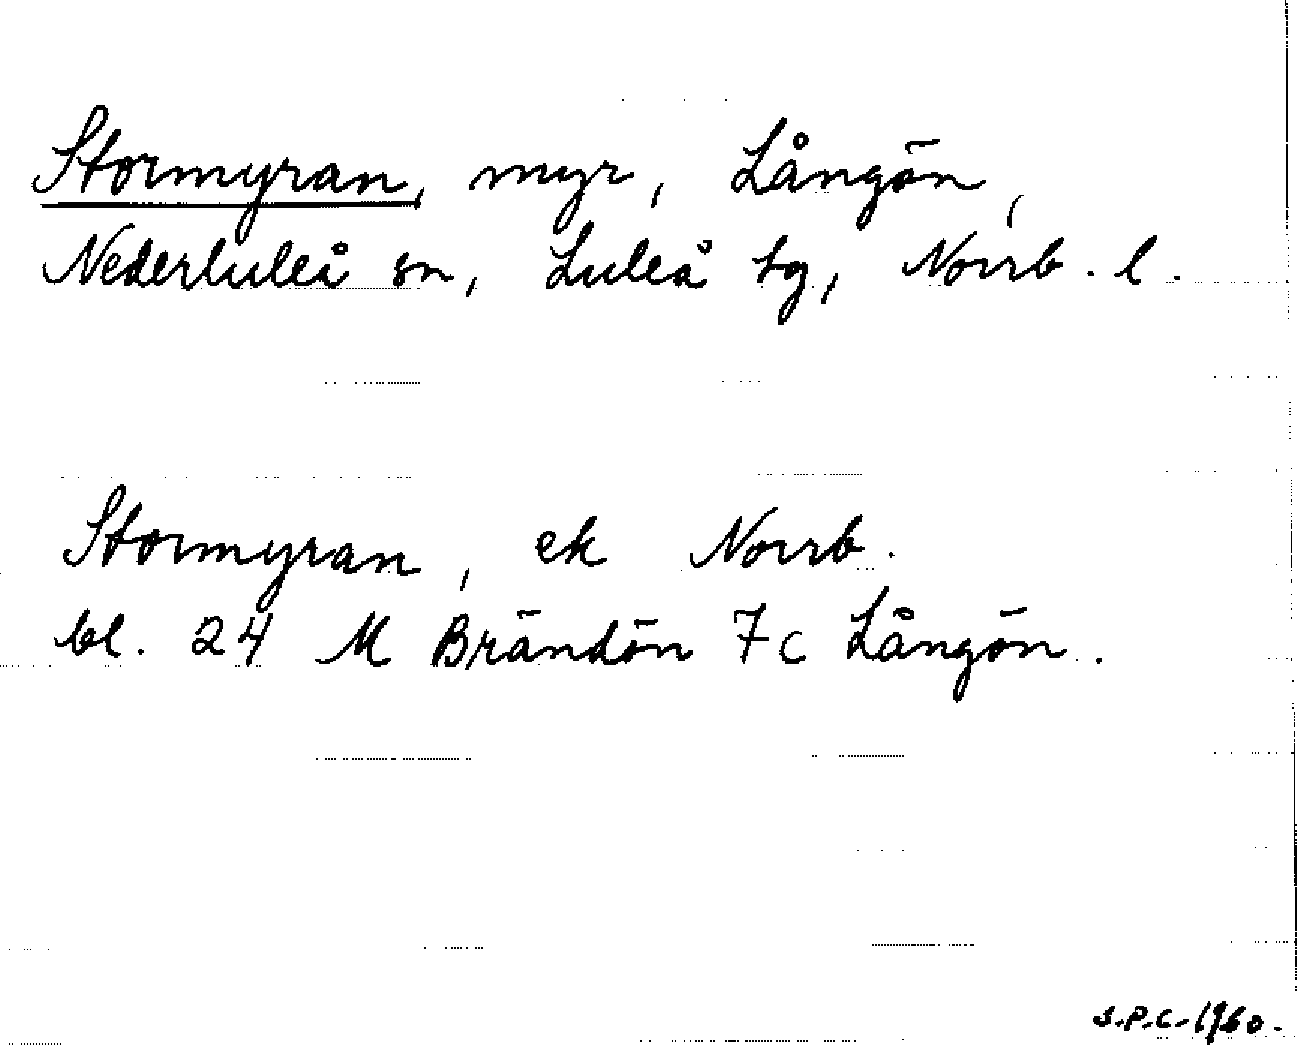 Stormyran, myr, Långön,
Nederluleå sn, Luleå tg, Norrb. l.
Stormyran, ek Norrb.
bl. 24 M Brändön 7c Långön.
S.P.C. 1960.